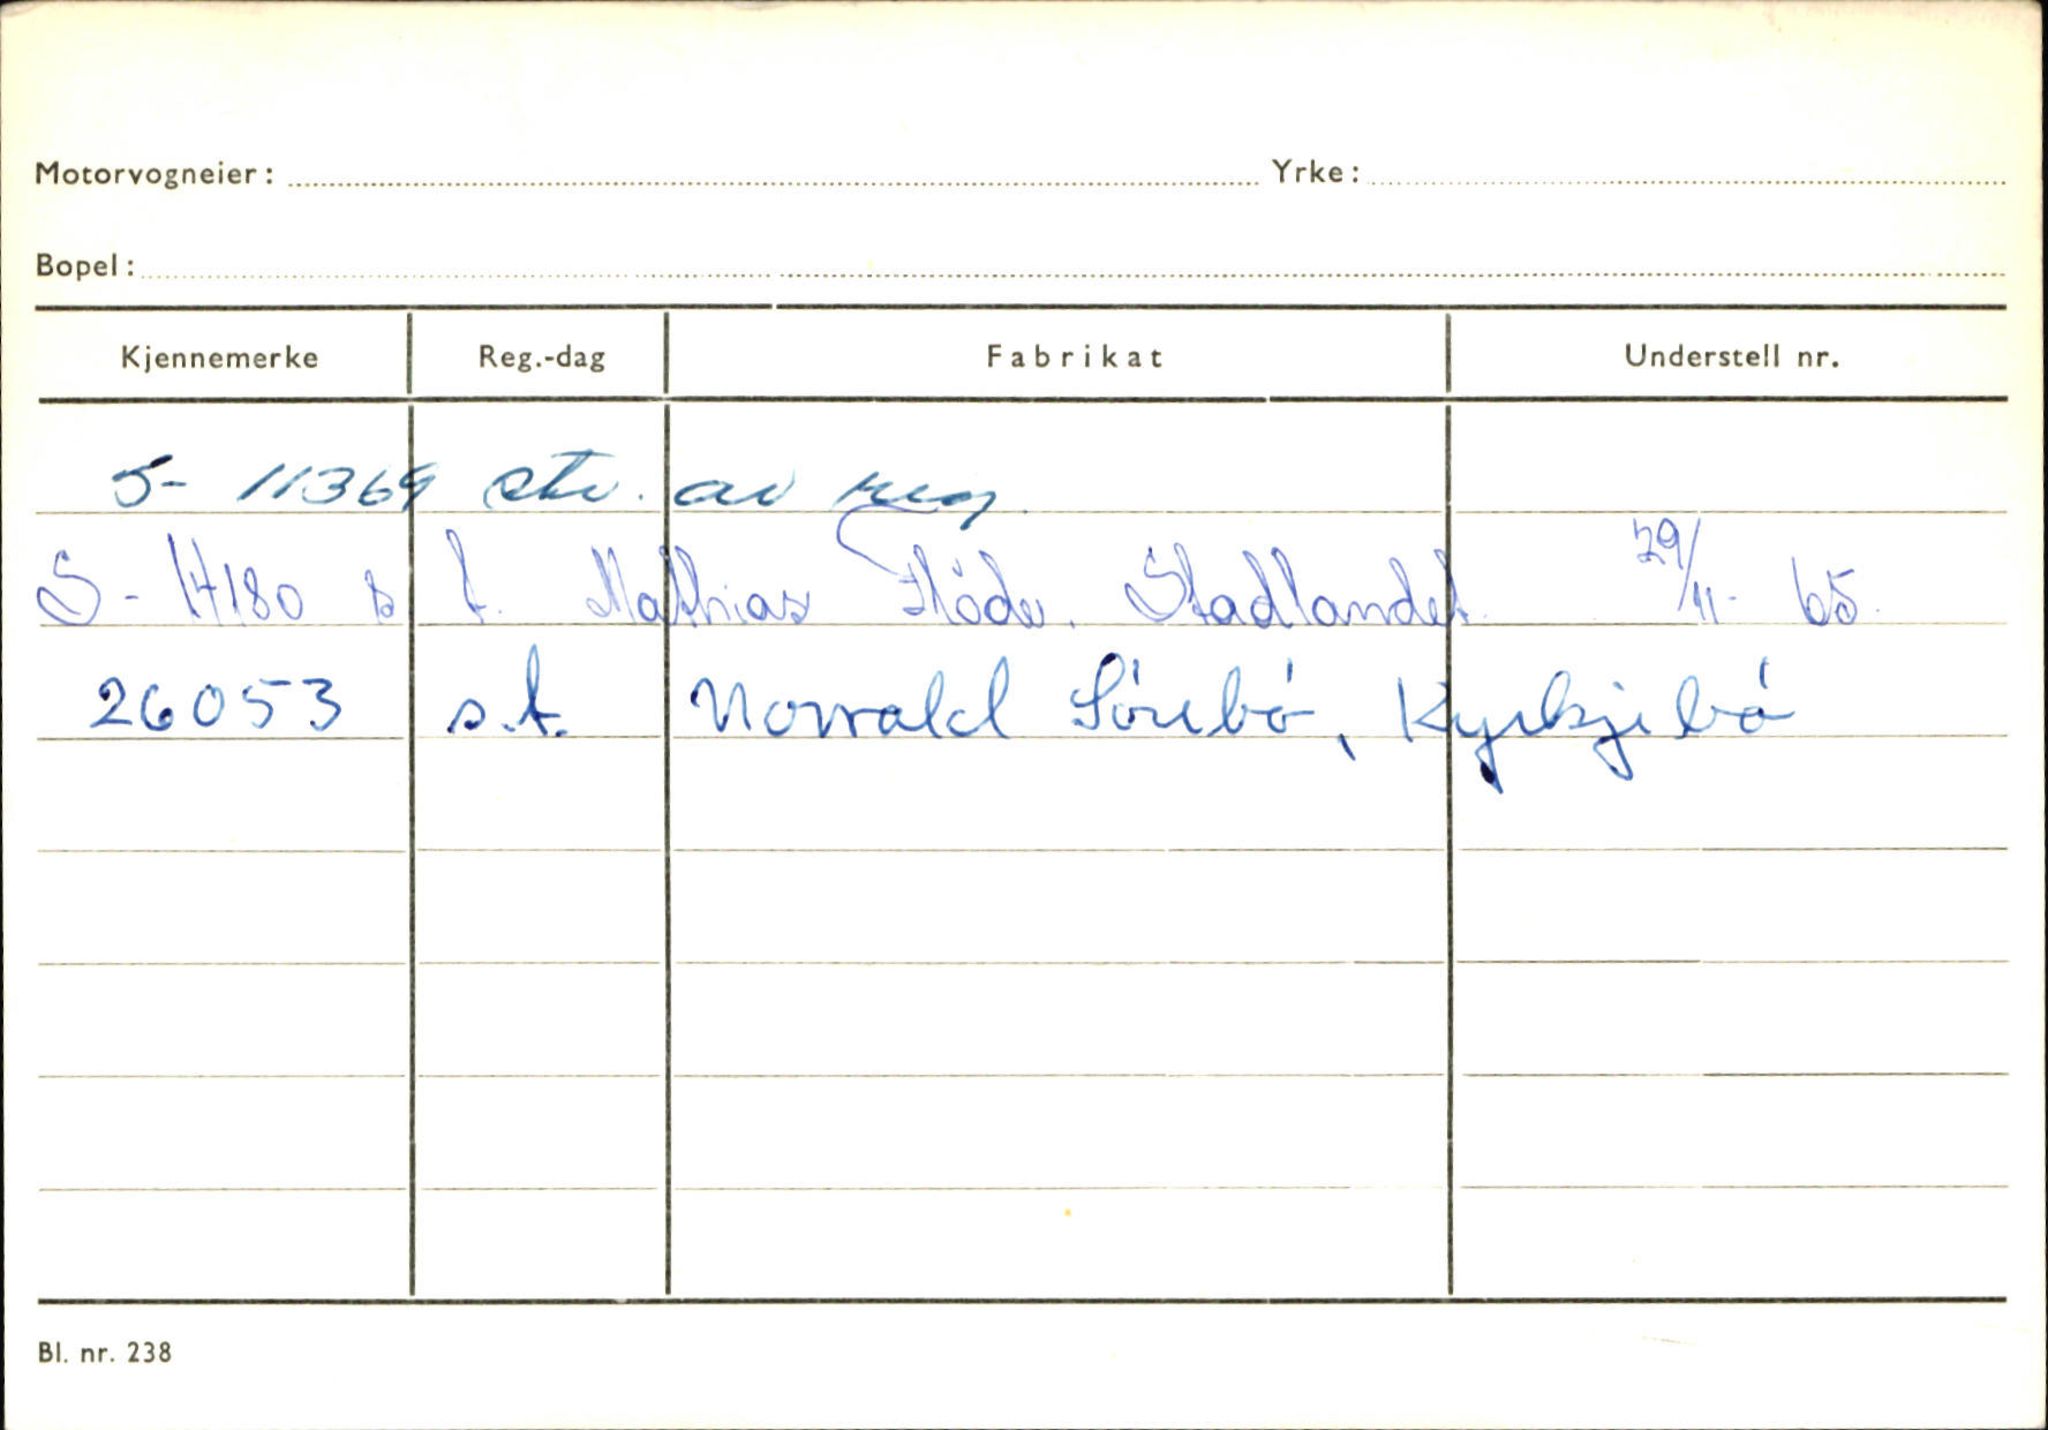 Motorvogneier: Yrke:
Bopel:
Kjennemerke Reg.-dag Fabrikat Understell nr.
S- 11369 str. av reg.
S- 14180 s t. Mathias Flöde. Stadlandet. 29/11- 65.
26053 s.t. Norvald Sörebó, Kyrkjebó
Bl. nr. 238